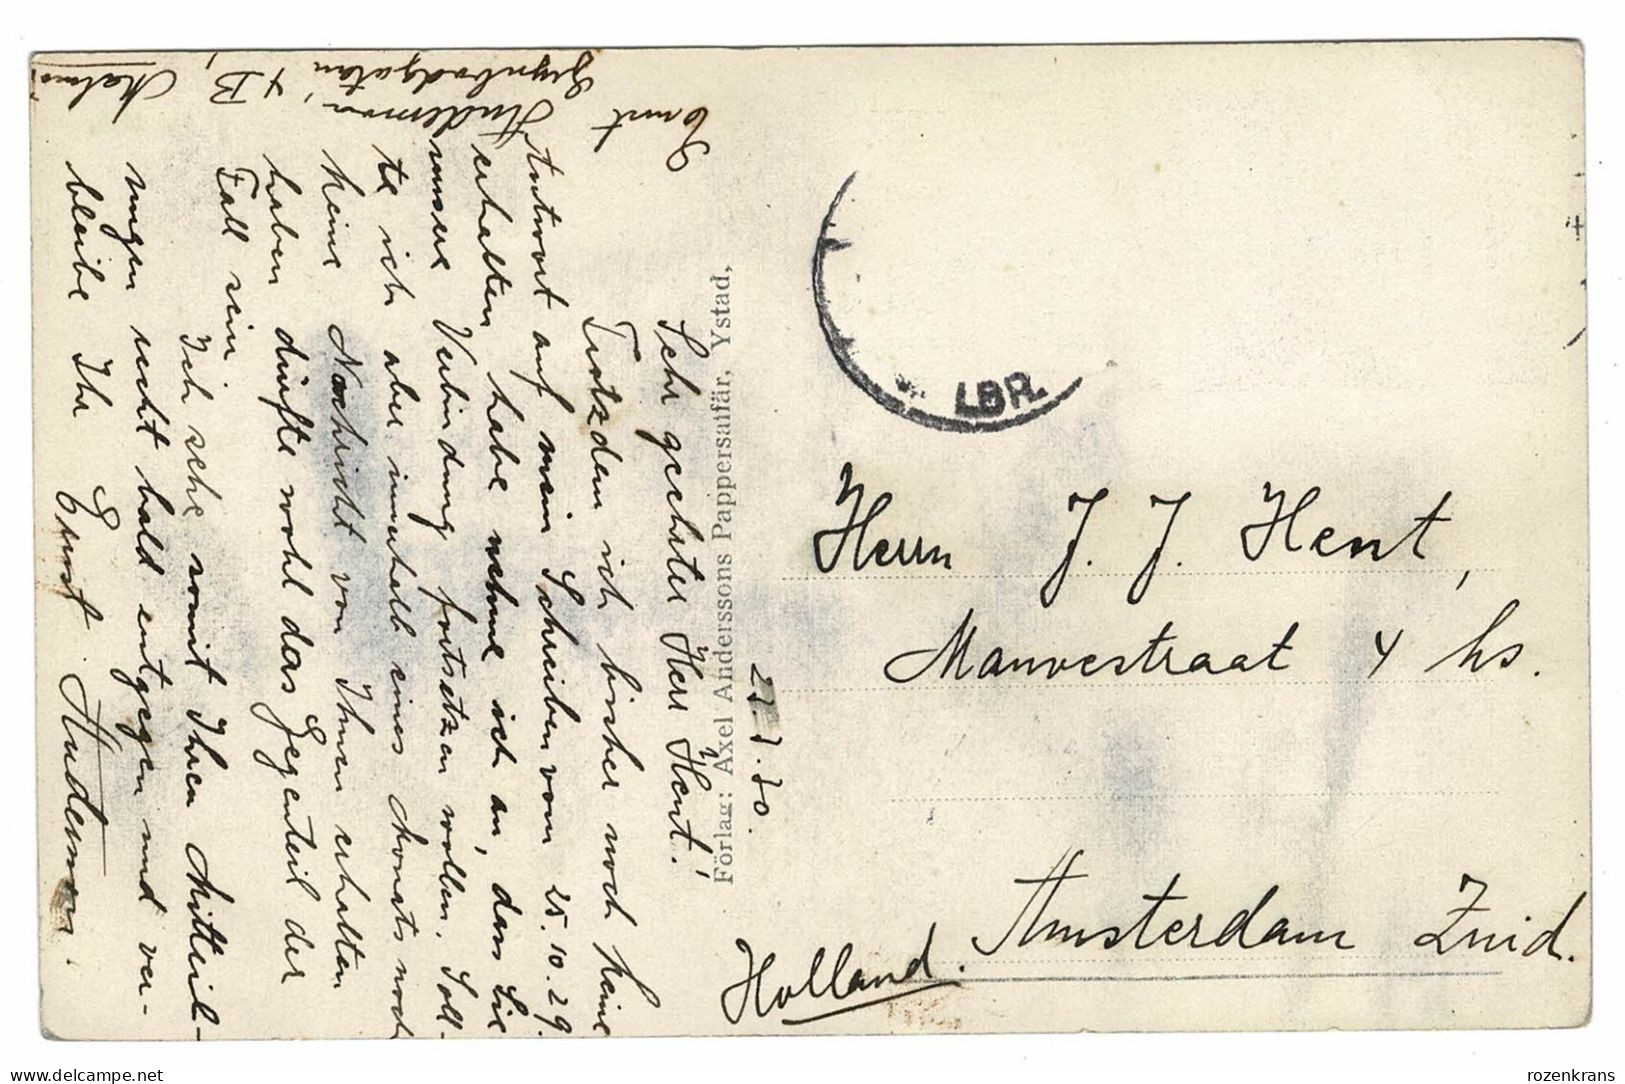 23.1.30.
Sehr geehrter Herr Hent!
Trotzdem ich bisher noch keine
Antwort auf mein Schreiben vom 25.10.29.
erhalten habe nehme ich an, dass Sie
unsere Verbindung fortsetzen wollen. Soll-
te ich aber innerhalb eines Monats noch
keine Nachricht von Ihnen erhalten
haben dürfte wohl das Gegenteil der
Fall sein.
Ich sehe somit Ihren Mitteil-
ungen recht bald entgegen und ver-
bleibe Ihr Ernst Hudemann.
Ernst
Hudemann,
4B,
Malmö
Förlag: Axel Anderssons Pappersaffär, Ystad,
LBR.
Herrn J. J. Hent,
Mauvestraat 4 hs.
Amsterdam Zuid.
Holland.
delcampe.net
rozenkrans